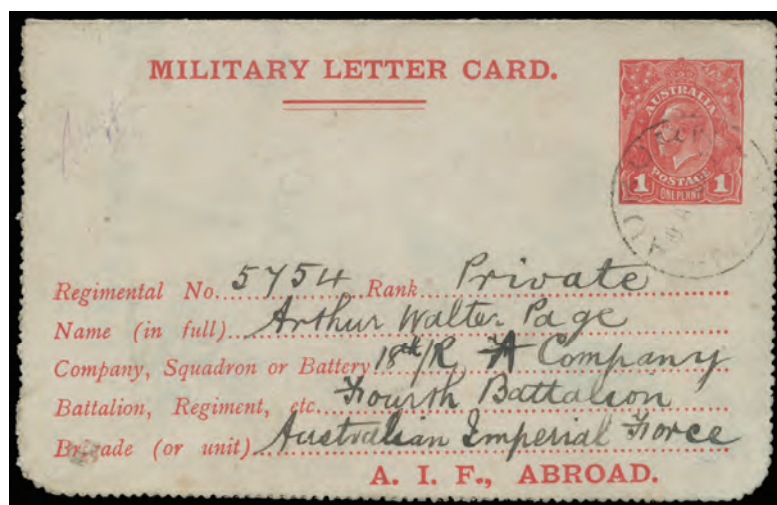 MILITARY LETTER CARD.
AUSTRALIA
POSTAGE
1 ONE PENNY 1
Regimental No. 5754 Rank Private
Name (in full) Arthur Walter Page
Company, Squadron or Battery 18th/R, A Company
Battalion, Regiment, etc. Fourth Battalion
Brigade (or unit) Australian Imperial Force
A. I. F., ABROAD.